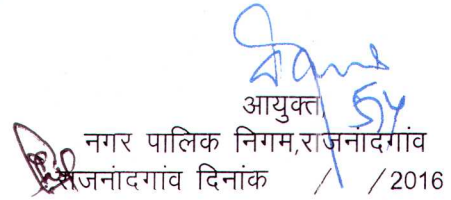 आयुक्त,
नगर पालिक निगम,राजनांदगांव
राजनांदगांव दिनांक / / 2016